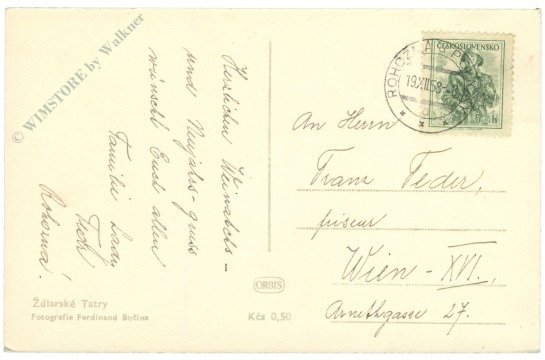 © WIMSTORE by Walkner
Herzlichen Weinachts-
und Neujahrs-gruss
wünscht Euch allen
Familie
Rohozná!
Ždiarské Tatry
Fotografie Ferdinand Bučina
ORBIS
Kčs 0,50
ČESKOSLOVENSKO
19.XII.58
An Herrn
Franz Feder,
friseur
Wien - XVI.,
Arnethgasse 27.